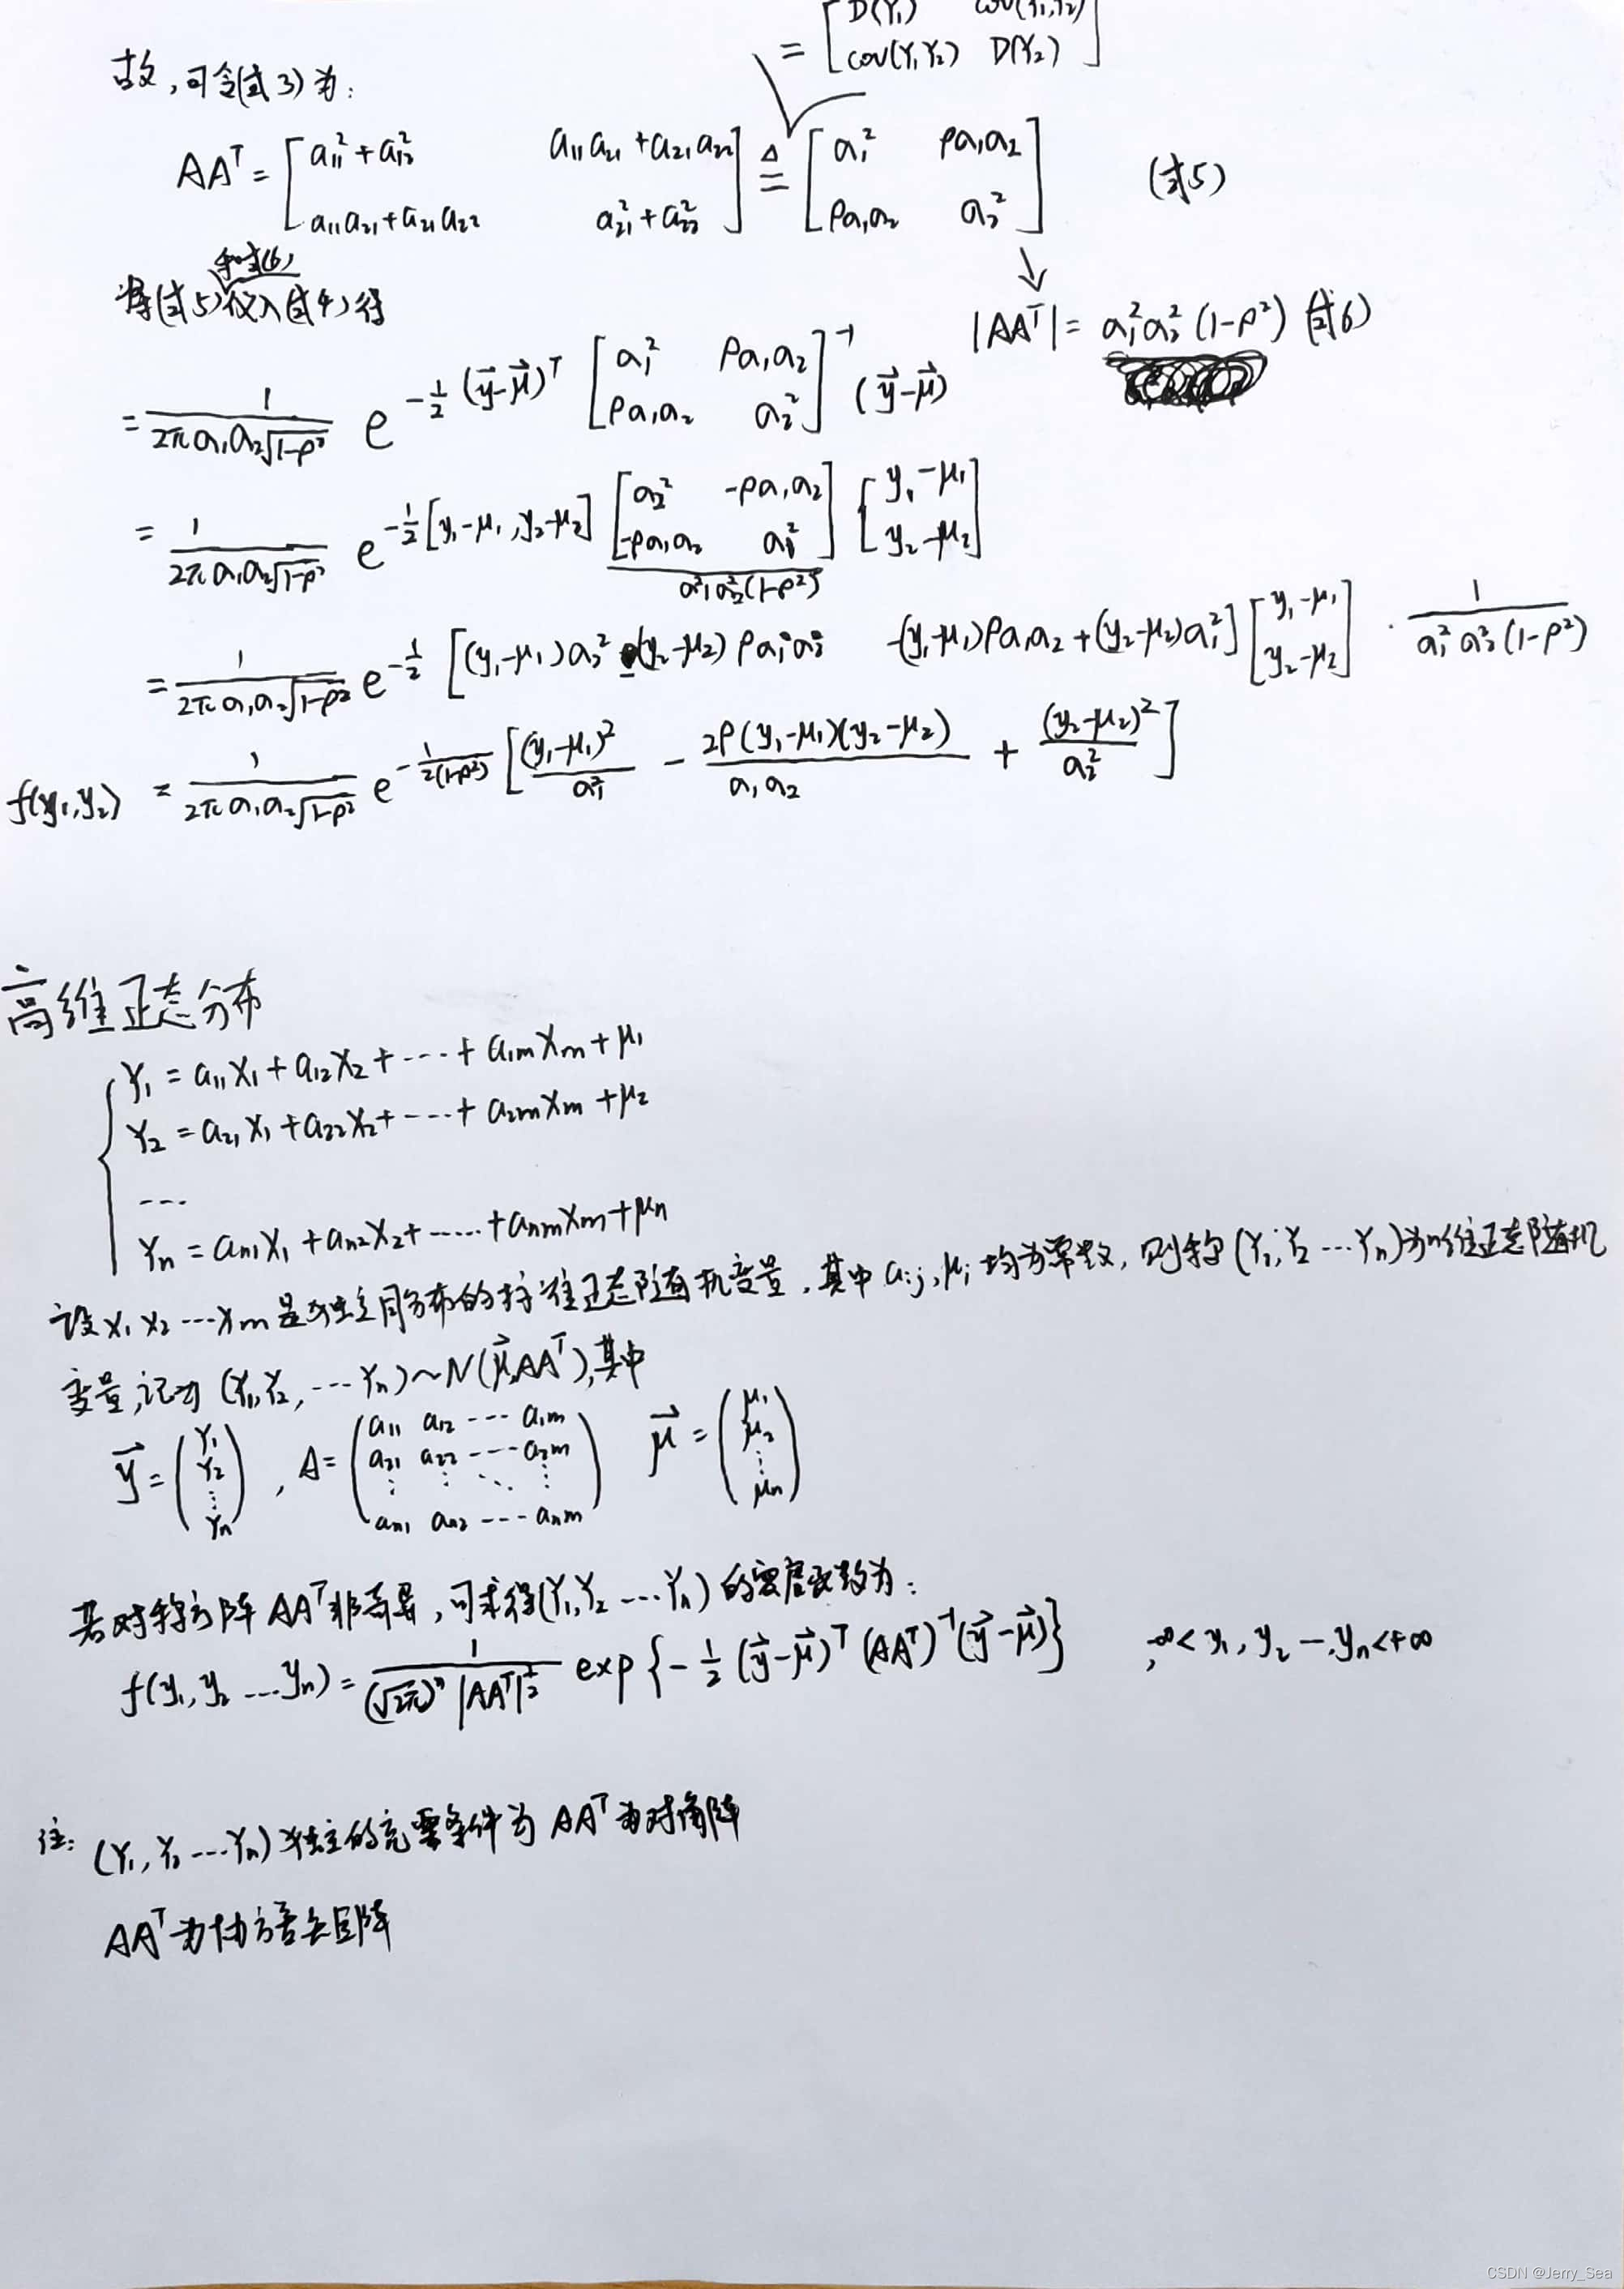 = [D(Y₁) cov(Y₁,Y₂)
cov(Y₁Y₂) D(Y₂)]
故,可令(式3)为:
AAᵀ = [a₁₁²+a₁₂² a₁₁a₂₁+a₂₁a₂₂
a₁₁a₂₁+a₂₁a₂₂ a₂₁²+a₂₂²] ≜ [a₁² ρa₁a₂
ρa₁a₂ a₂²] (式5)
和式(6)
将(式5)代入(式4)得
↓
|AAᵀ| = a₁²a₂²(1-ρ²) (式6)
= 1/(2πa₁a₂√(1-ρ²)) e^{-1/2 (y⃗-μ⃗)ᵀ [a₁² ρa₁a₂
ρa₁a₂ a₂²]⁻¹ (y⃗-μ⃗)}
= 1/(2πa₁a₂√(1-ρ²)) e^{-1/2 [y₁-μ₁, y₂-μ₂] [a₂² -ρa₁a₂
-ρa₁a₂ a₁²]/(a₁²a₂²(1-ρ²)) [y₁-μ₁
y₂-μ₂]}
= 1/(2πa₁a₂√(1-ρ²)) e^{-1/2 [(y₁-μ₁)a₂²-(y₂-μ₂)ρa₁a₂ -(y₁-μ₁)ρa₁a₂+(y₂-μ₂)a₁²] [y₁-μ₁
y₂-μ₂] · 1/(a₁²a₂²(1-ρ²))}
f(y₁,y₂) = 1/(2πa₁a₂√(1-ρ²)) e^{-1/(2(1-ρ²)) [(y₁-μ₁)²/a₁² - 2ρ(y₁-μ₁)(y₂-μ₂)/(a₁a₂) + (y₂-μ₂)²/a₂²]}
高维正态分布
Y₁ = a₁₁X₁+a₁₂X₂+····+a₁ₘXₘ+μ₁
Y₂ = a₂₁X₁+a₂₂X₂+····+a₂ₘXₘ+μ₂
···
Yₙ = aₙ₁X₁+aₙ₂X₂+·····+aₙₘXₘ+μₙ
设X₁X₂···Xₘ是独立同分布的标准正态随机变量,其中aᵢⱼ,μᵢ均为常数,则称(Y₁,Y₂···Yₙ)为n维正态随机
变量,记为 (Y₁,Y₂,···Yₙ)~N(μ⃗,AAᵀ),其中
y⃗ = (Y₁
Y₂
⋮
Yₙ) , A = (a₁₁ a₁₂ ··· a₁ₘ
a₂₁ a₂₂ ··· a₂ₘ
⋮ ⋮ ⋱ ⋮
aₙ₁ aₙ₂ ··· aₙₘ) μ⃗ = (μ₁
μ₂
⋮
μₙ)
若对称方阵AAᵀ非奇异,可求得(Y₁,Y₂···Yₙ)的密度函数为:
f(y₁,y₂···yₙ) = 1/((√2π)ⁿ|AAᵀ|^{1/2}) exp{-1/2 (y⃗-μ⃗)ᵀ(AAᵀ)⁻¹(y⃗-μ⃗)} ,-∞<y₁,y₂···yₙ<+∞
注: (Y₁,Y₂···Yₙ)独立的充要条件为AAᵀ为对角阵
AAᵀ为协方差矩阵
CSDN @Jerry_Sea